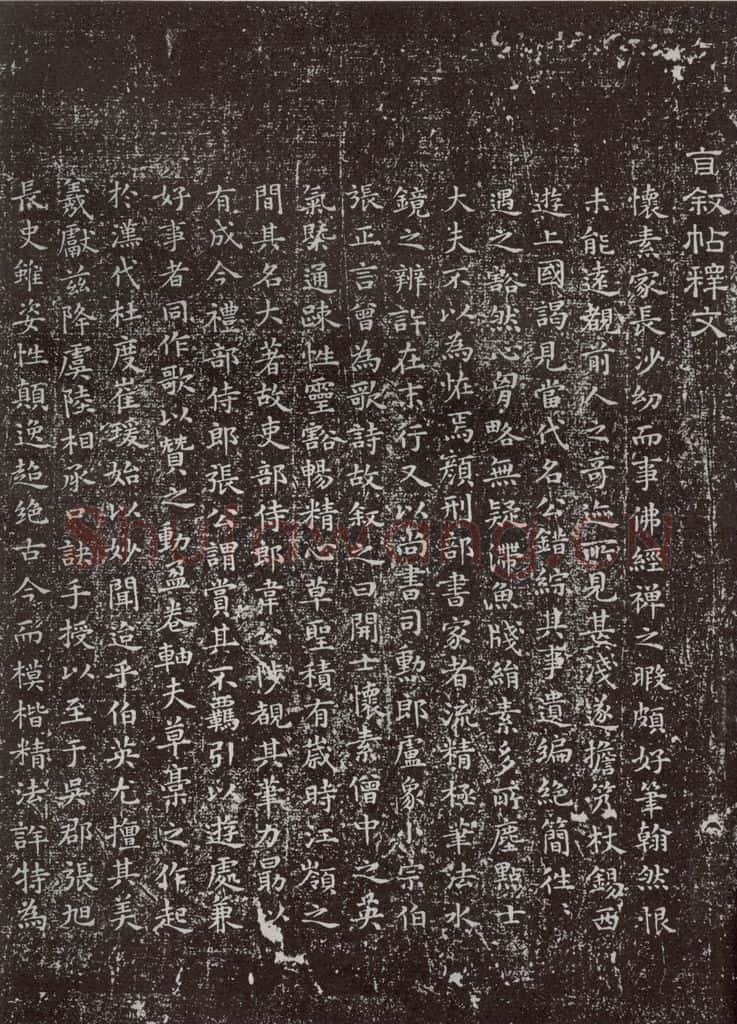 自叙帖釋文
懷素家長沙幼而事佛經禪之暇頗好筆翰然恨
未能遠覩前人之奇迹所見甚淺遂擔笈杖錫西
遊上國謁見當代名公錯綜其事遺編絶簡往、
遇之豁然心胷略無疑滯魚牋絹素多所塵點士
大夫不以為恠焉顔刑部書家者流精極筆法水
鏡之辨許在末行又以尚書司勲郎盧象小宗伯
張正言曾為歌詩故叙之曰開士懷素僧中之英
氣槩通踈性靈豁暢精心草聖積有歲時江嶺之
間其名大著故吏部侍郎韋公陟覩其筆力朂以
有成今禮部侍郎張公謂賞其不羈引以遊處兼
好事者同作歌以贊之動盈卷軸夫草藁之作起
於漢代杜度崔瑗始以妙聞迨乎伯英尤擅其美
羲獻兹降虞陸相承口訣手授以至于吳郡張旭
長史雖姿性顛逸超絶古今而模楷精法詳特為
Shufawang.CN